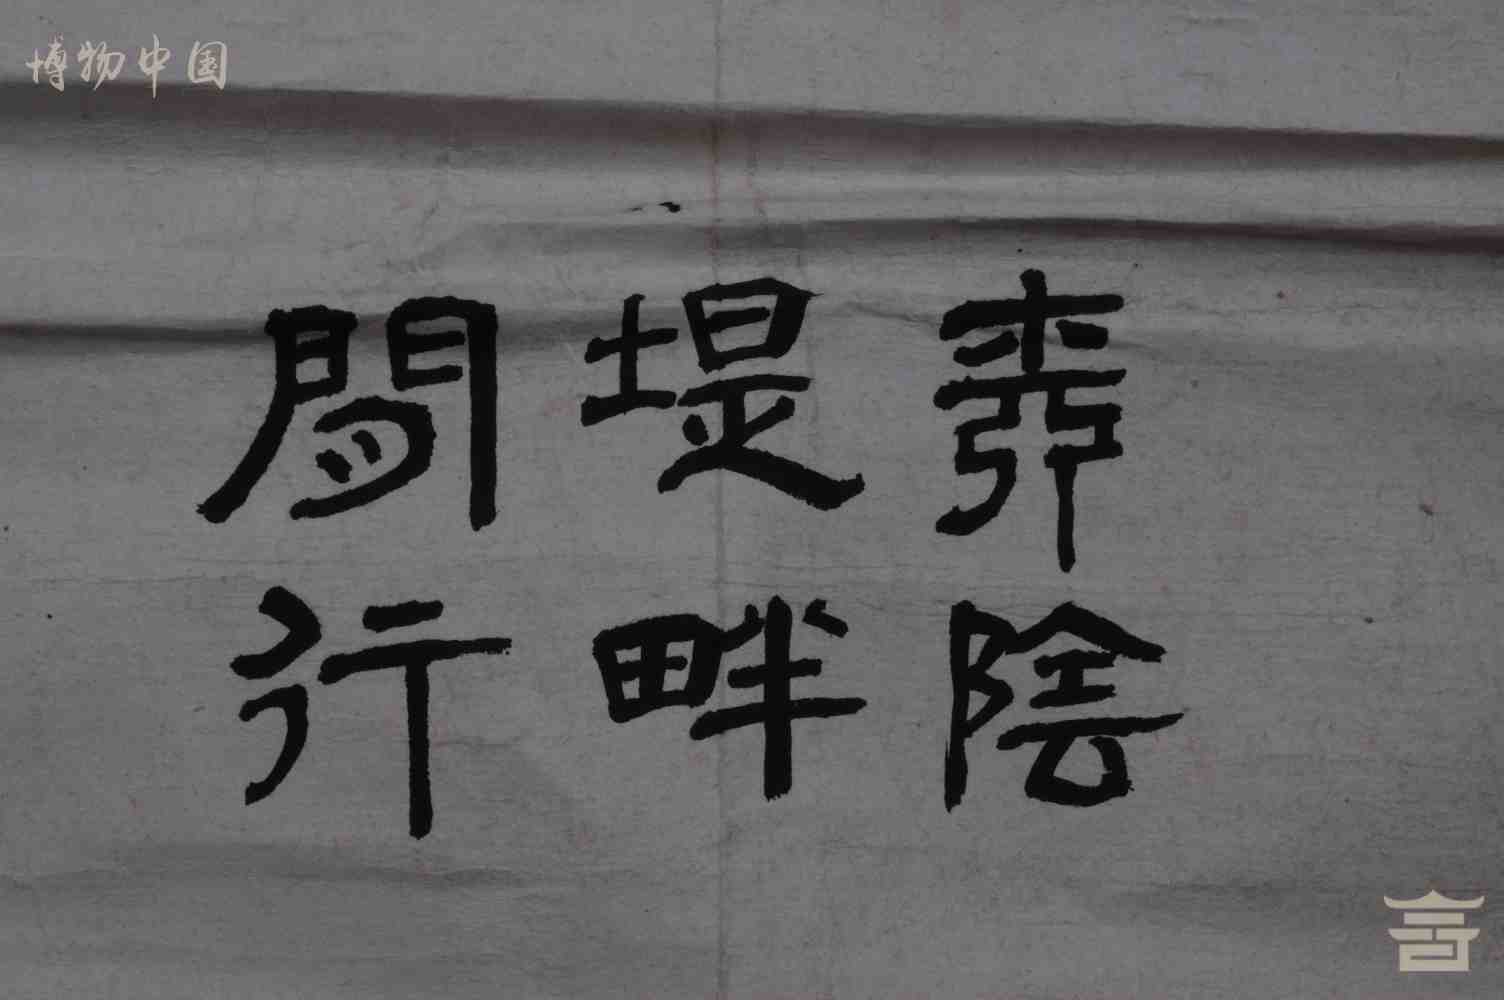 博物中国
柳陰
堤畔
閒行